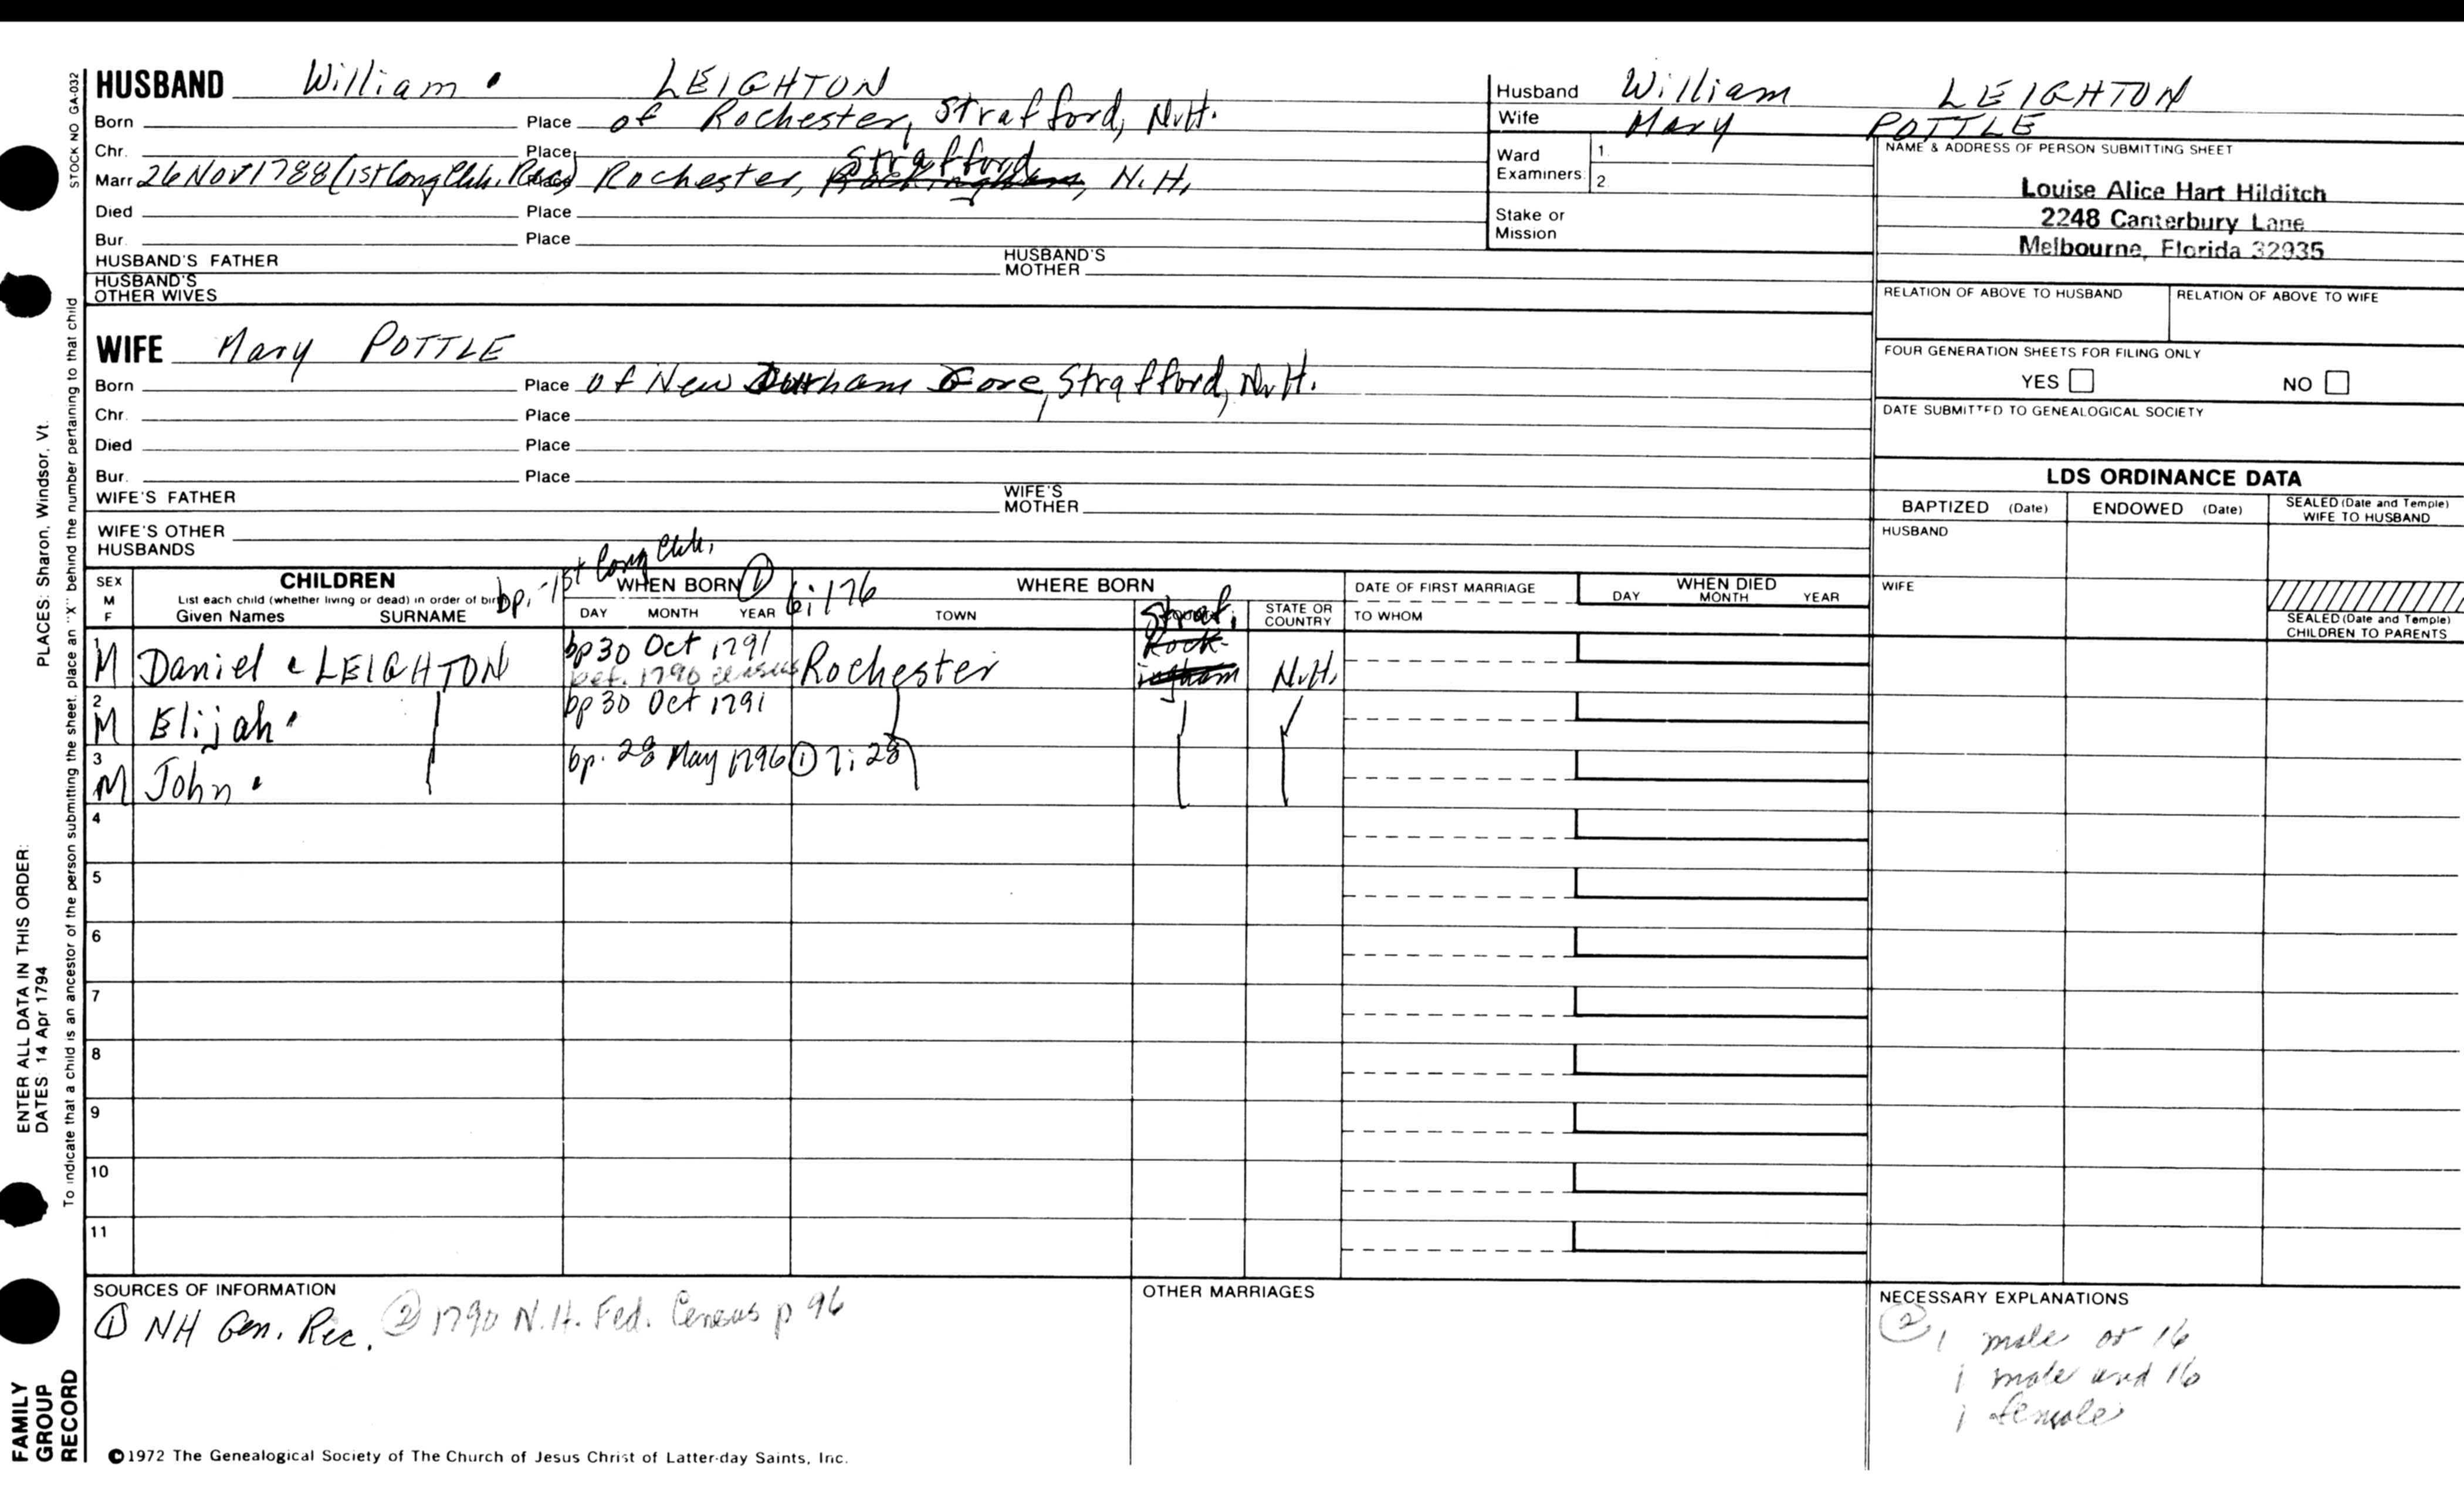 STOCK NO GA-032
HUSBAND William LEIGHTON
Born Place of Rochester, Strafford, N.H.
Chr. Place
Strafford
Marr 26 Nov 1788 (1st Cong Chh. Rec) Place Rochester, Rockingham, N.H.
Died Place
Bur. Place
HUSBAND'S FATHER HUSBAND'S MOTHER
HUSBAND'S OTHER WIVES
Husband William LEIGHTON
Wife Mary POTTLE
Ward Examiners 1. 2.
Stake or Mission
NAME & ADDRESS OF PERSON SUBMITTING SHEET
Louise Alice Hart Hilditch
2248 Canterbury Lane
Melbourne, Florida 32935
RELATION OF ABOVE TO HUSBAND RELATION OF ABOVE TO WIFE
FOUR GENERATION SHEETS FOR FILING ONLY
YES NO
DATE SUBMITTED TO GENEALOGICAL SOCIETY
WIFE Mary POTTLE
Born Place of New Durham Gore, Strafford, N.H.
Chr. Place
Died Place
Bur. Place
WIFE'S FATHER WIFE'S MOTHER
WIFE'S OTHER HUSBANDS
LDS ORDINANCE DATA
BAPTIZED (Date) ENDOWED (Date) SEALED (Date and Temple) WIFE TO HUSBAND
HUSBAND
WIFE
SEALED (Date and Temple) CHILDREN TO PARENTS
bp. - 1st Cong Chh. ① 6:176
SEX M F
CHILDREN
List each child (whether living or dead) in order of birth
Given Names SURNAME
WHEN BORN
DAY MONTH YEAR
WHERE BORN
TOWN Straf. STATE OR COUNTRY
DATE OF FIRST MARRIAGE
TO WHOM
WHEN DIED
DAY MONTH YEAR
1 M Daniel LEIGHTON bp 30 Oct 1791 Rochester Rockingham N.H.
bef. 1790 census
2 M Elijah bp 30 Oct 1791
3 M John bp. 28 May 1796 ① 7:28
4
5
6
7
8
9
10
11
SOURCES OF INFORMATION
① NH Gen. Rec. ② 1790 N.H. Fed. Census p 96
OTHER MARRIAGES
NECESSARY EXPLANATIONS
② 1 male ov 16
1 male und 16
1 female
©1972 The Genealogical Society of The Church of Jesus Christ of Latter-day Saints, Inc.
FAMILY GROUP RECORD
ENTER ALL DATA IN THIS ORDER:
DATES: 14 Apr 1794
PLACES: Sharon, Windsor, Vt.
To indicate that a child is an ancestor of the person submitting the sheet, place an "X" behind the number pertaining to that child